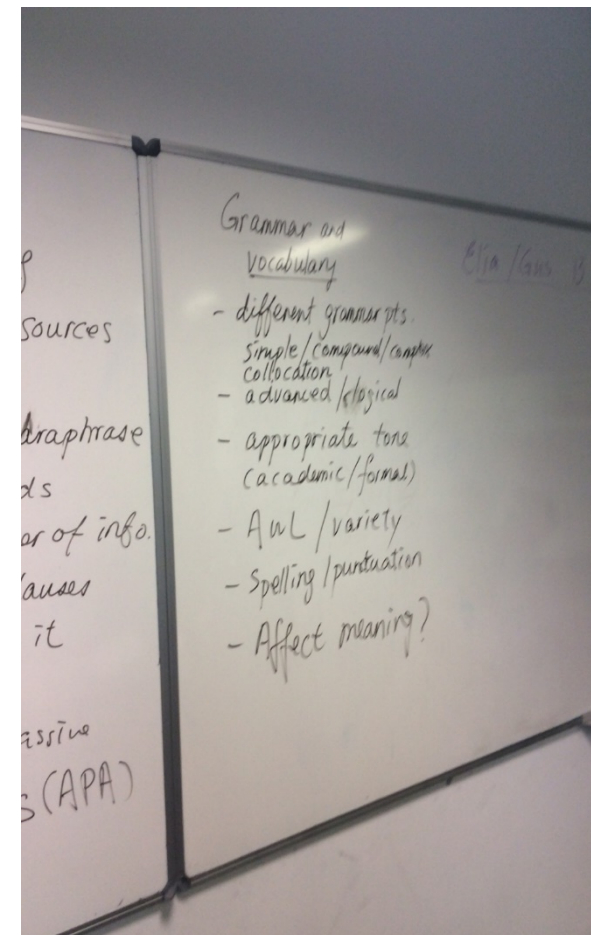 sources
araphrase
ds
er of info.
auses
it
assive
s (APA)
Grammar and
vocabulary
- different grammar pts.
simple/compound/complex
collocation
- advanced /
- appropriate tone
(academic/formal)
- AWL/variety
- Spelling/puntuation
- Affect meaning?
Elja / Gus B